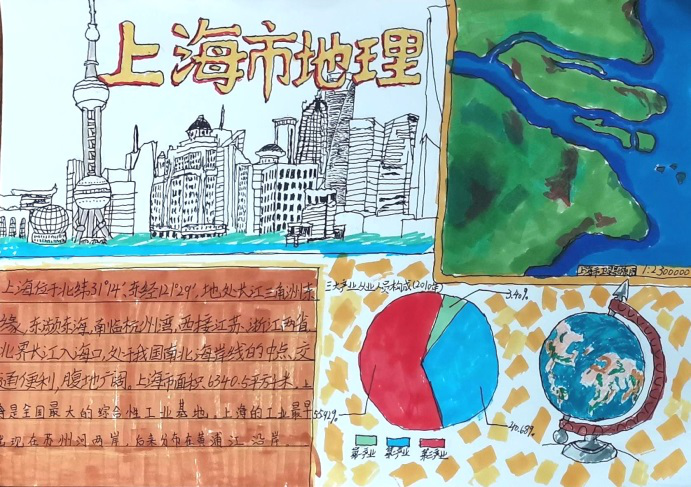 上海市地理
上海市卫星图 1:2300000
上海位于北纬31°14′,东经121°29′,地处长江三角洲东
缘,东濒东海,南临杭州湾,西接江苏、浙江两省,
北界长江入海口,处于我国南北海岸线的中点,交
通便利,腹地广阔。上海市面积6340.5平方千米。上
海是全国最大的综合性工业基地。上海的工业最早
出现在苏州河两岸,后来分布在黄浦江沿岸.
三大产业从业人员构成(2010年)
3.40%
55.92%
40.68%
第一产业 第二产业 第三产业